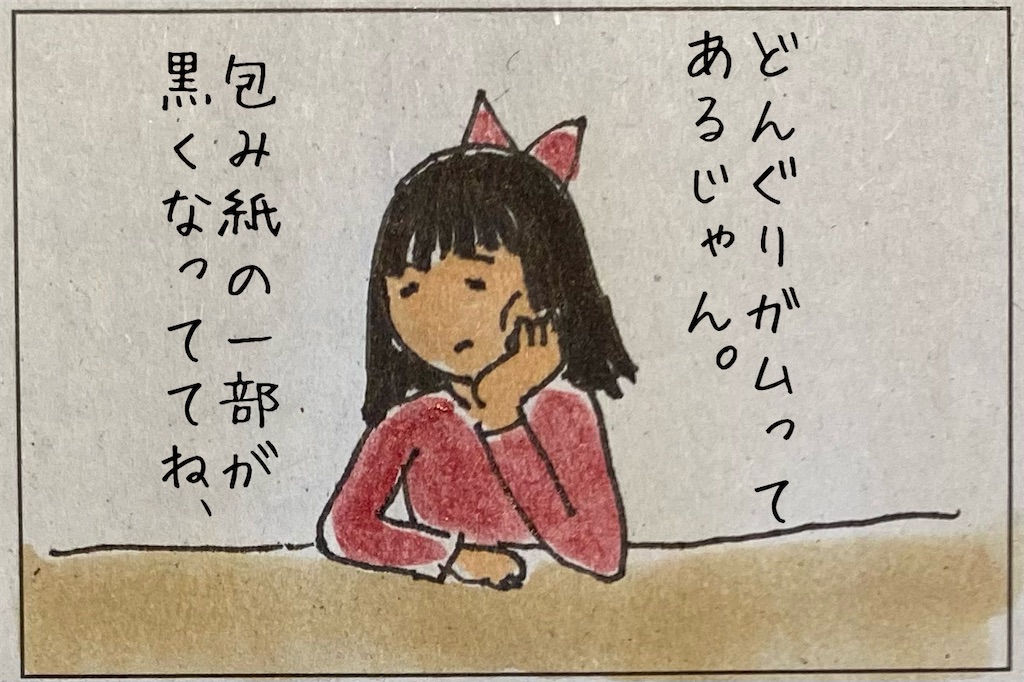 どんぐりガムって
あるじゃん。
包み紙の一部が
黒くなっててね、